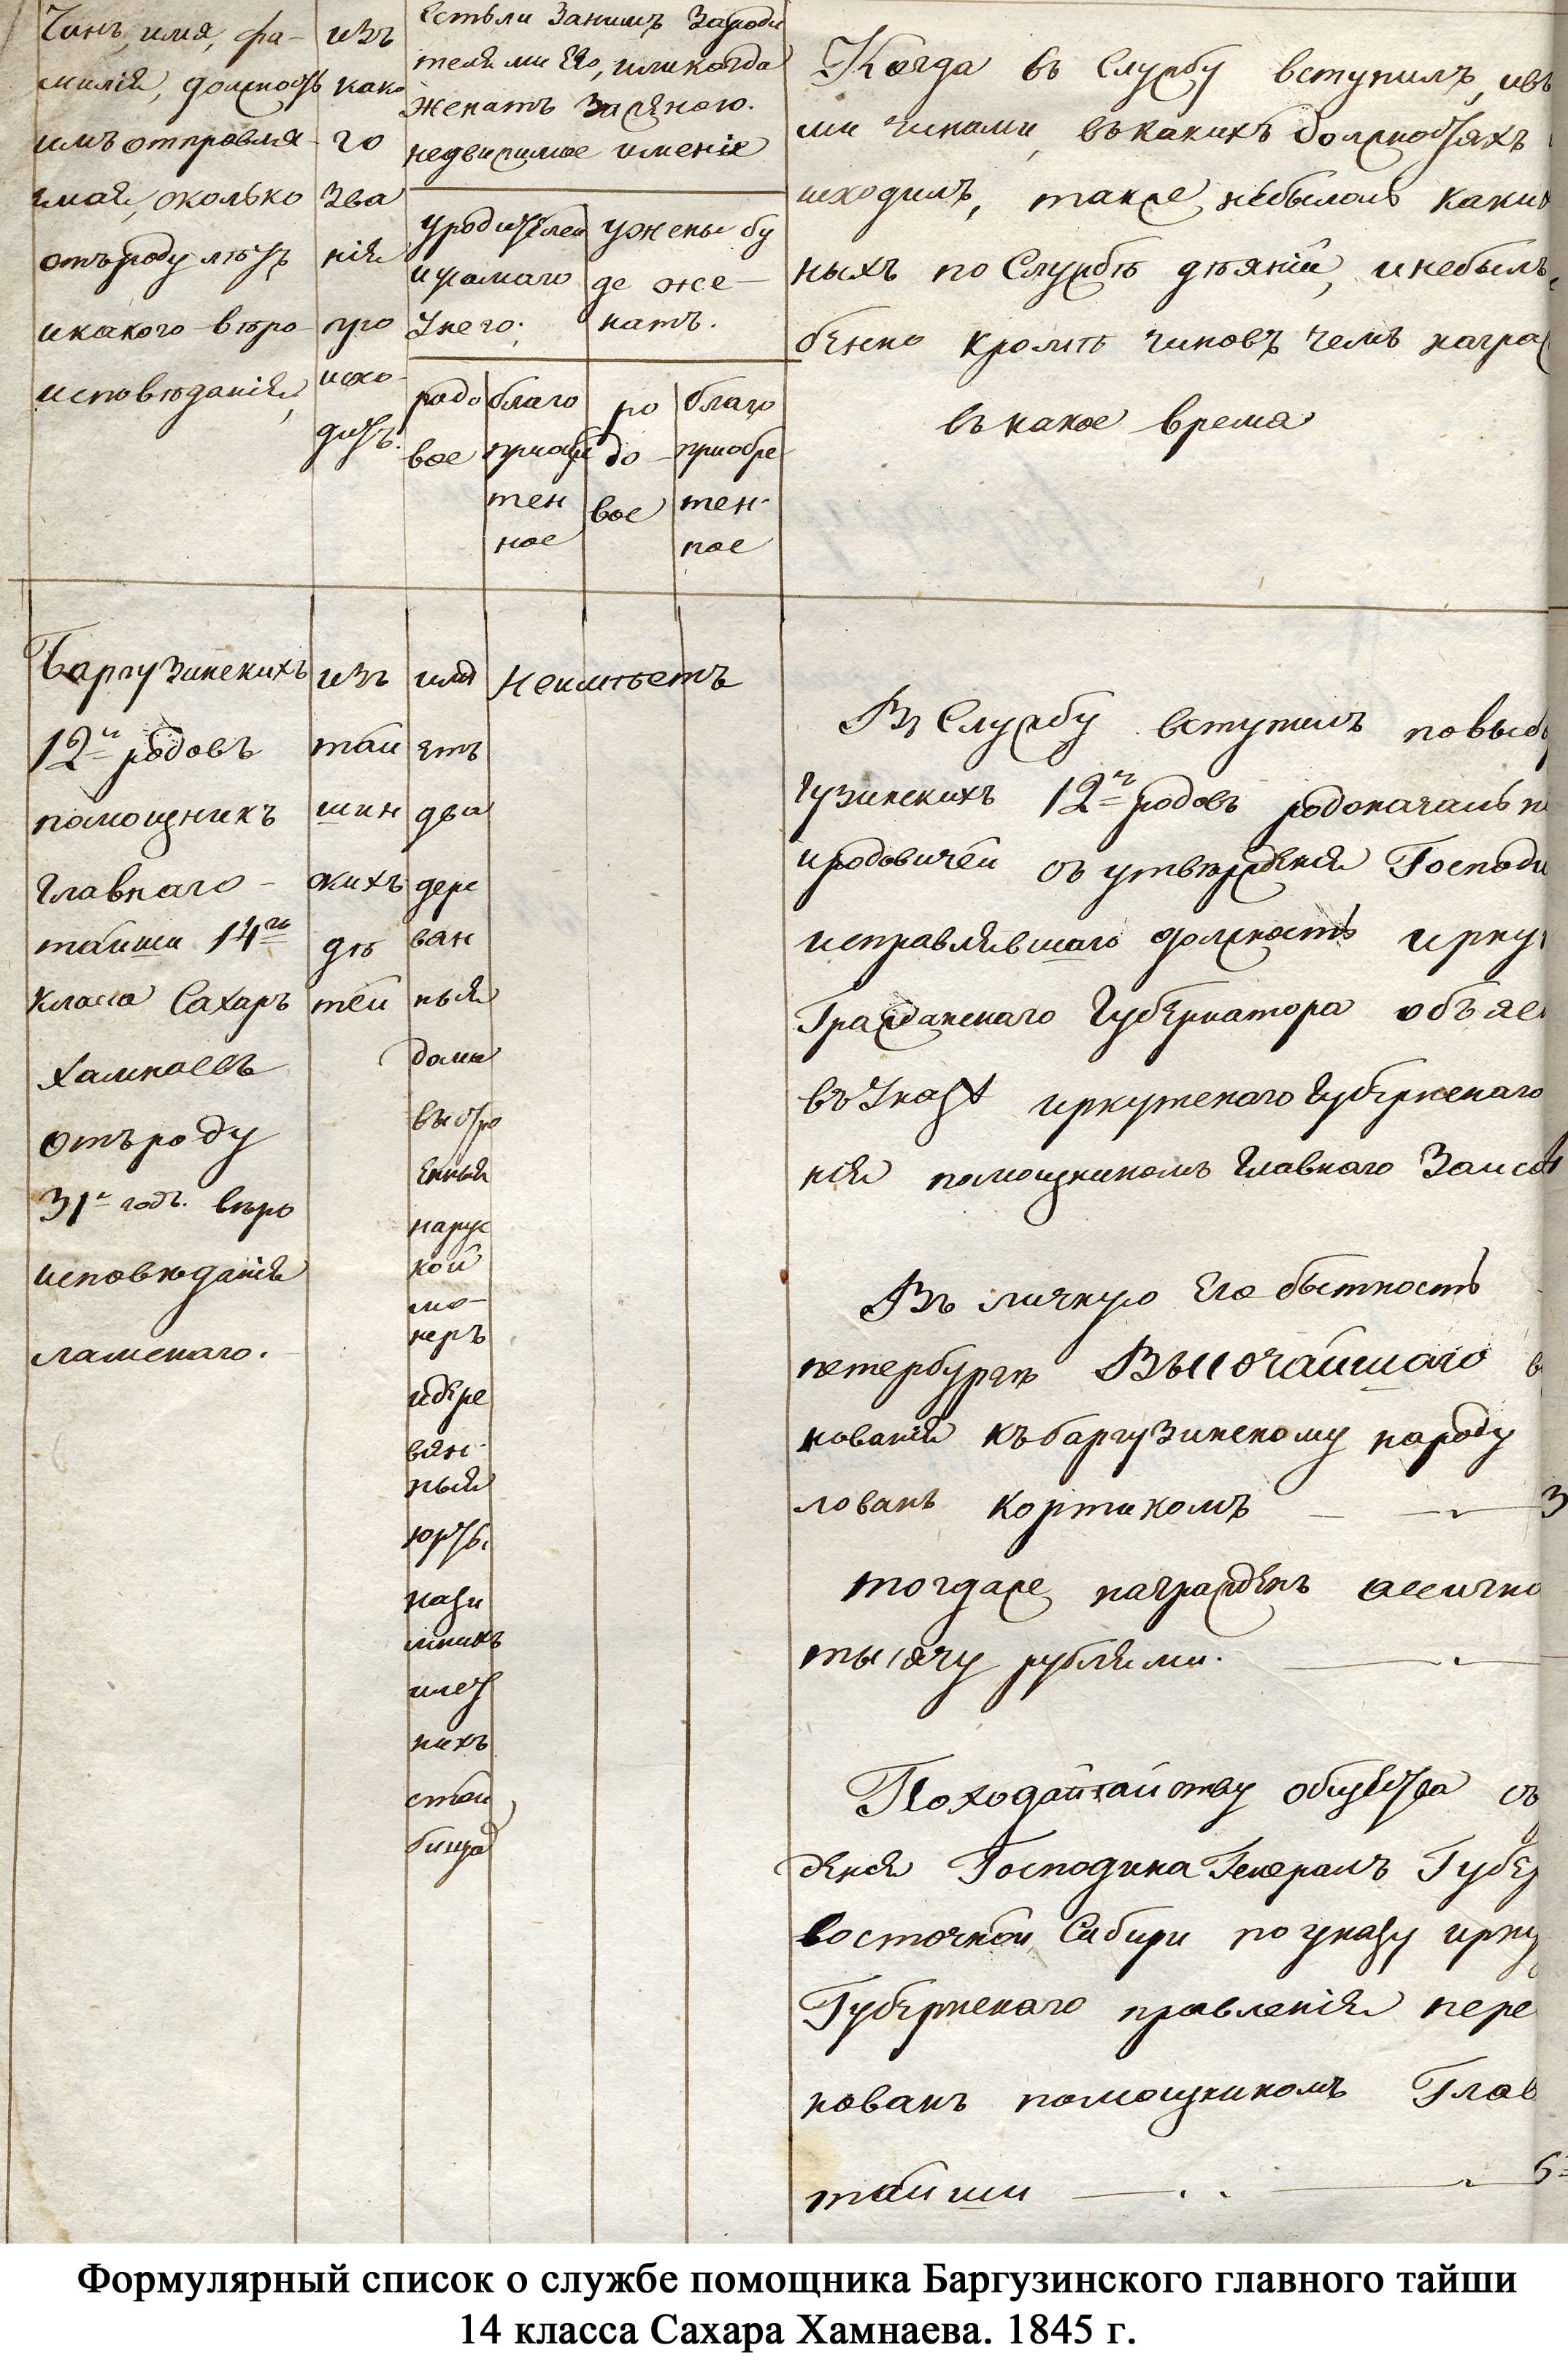 Чинъ, имя, фа-
милія, должность
имъ отправля-
емая, сколько
отъ роду летъ
и какого веро-
исповѣданія,
изъ
како
го
зва
нія
про
исхо-
дитъ.
Естьли за нимъ за роди
телями Его, или когда
женатъ за женою.
недвижимое именіе
у родителей
и у самаго
У него.
у жены бу
де же-
натъ.
родо
вое
благо
приобре
тен
ное
ро
до-
вое
благо
приобре
тен-
ное
Когда въ Службу вступилъ,
ми чинами, въ какихъ должностяхъ
также, небылоль
ныхъ по Службѣ дѣяній, и небылъ
бенно кромѣ чиновъ чемъ
въ какое время
Баргузинскихъ
12ти родовъ
помощникъ
Главнаго-
тайши 14го
класса Сахаръ
Хамнаевъ
отъ роду
31го годъ. веро
исповѣданія
ламскаго.
изъ
тай
шин
скихъ
дѣ
тей
имѣ
етъ
два
дере
вян
ныя
дома
выстро
енныя
на рус
кой
ма-
неръ
и дере
вян-
ныя
юрты.
на зи
мникъ
и лет
никъ
стой
бища
Неимѣетъ
Въ Службу вступилъ по
гузинскихъ 12ти родовъ
и родовичей съ утвержденія
исправлявшаго должность
Гражданскаго Губернатора
въ Указѣ иркутскаго Губернскаго
нія помощникомъ Главнаго
Въ личную Его бытность
петербургѣ Высочайшаго
нованія къ баргузинскому народу
лованъ кортикомъ - - 3
тогдаже награжденъ
тысячу рублями.
По ходатайству общества съ
денія Господина Генералъ
восточной Сибири по указу
Губернскаго правленія
нованъ помощникомъ
тайши
Формулярный список о службе помощника Баргузинского главного тайши
14 класса Сахара Хамнаева. 1845 г.